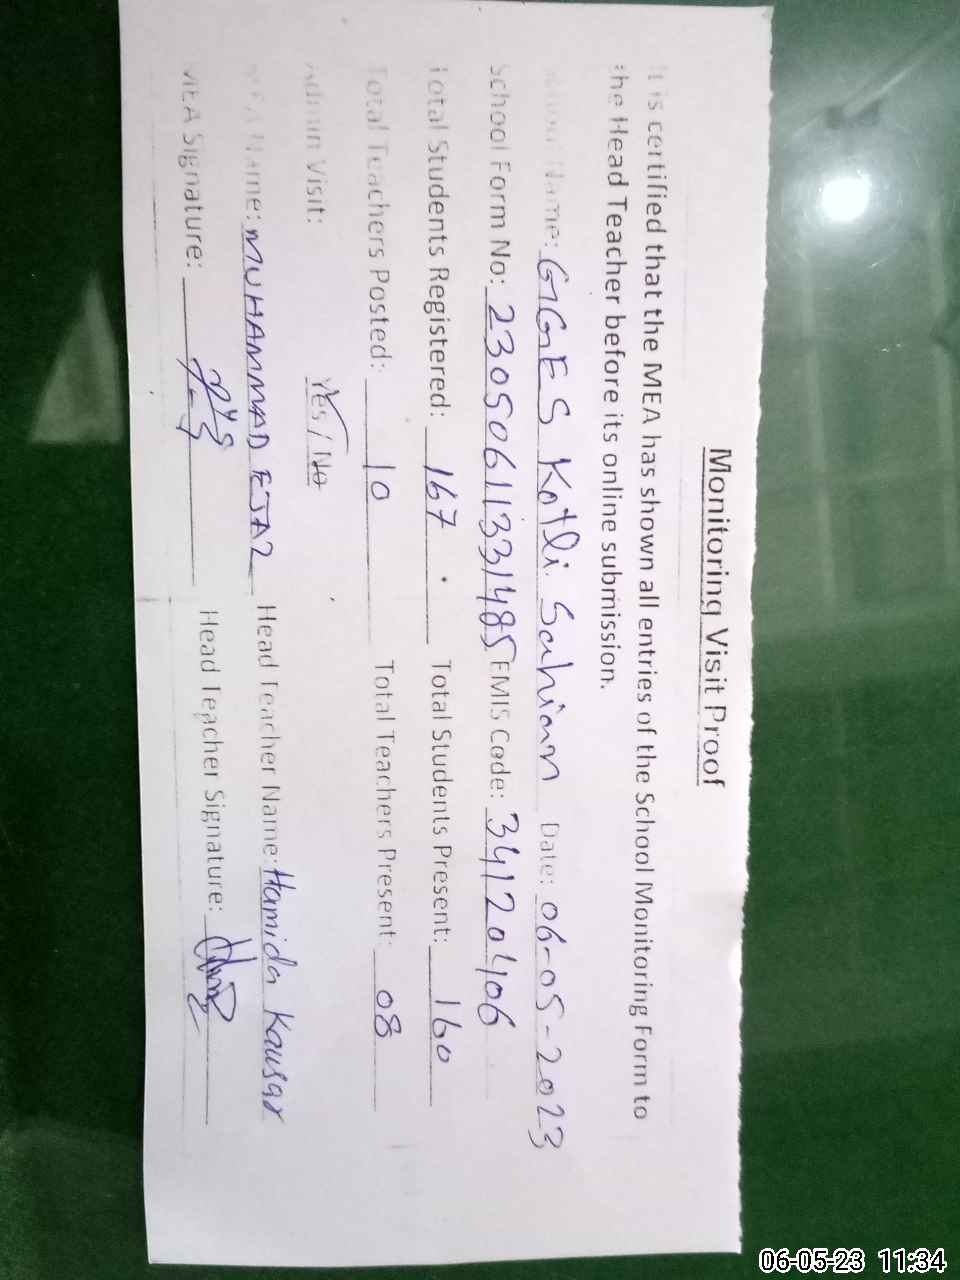 Monitoring Visit Proof
It is certified that the MEA has shown all entries of the School Monitoring Form to
the Head Teacher before its online submission.
School Name: GGES Kotli Sahian Date: 06-05-2023
School Form No: 23050611331485 EMIS Code: 34120406
Total Students Registered: 167 Total Students Present: 160
Total Teachers Posted: 10 Total Teachers Present: 08
Admin Visit: Yes / No
MEA Name: MUHAMMAD EJAZ Head Teacher Name: Hamida Kausar
MEA Signature: Head Teacher Signature:
06-05-23 11:34